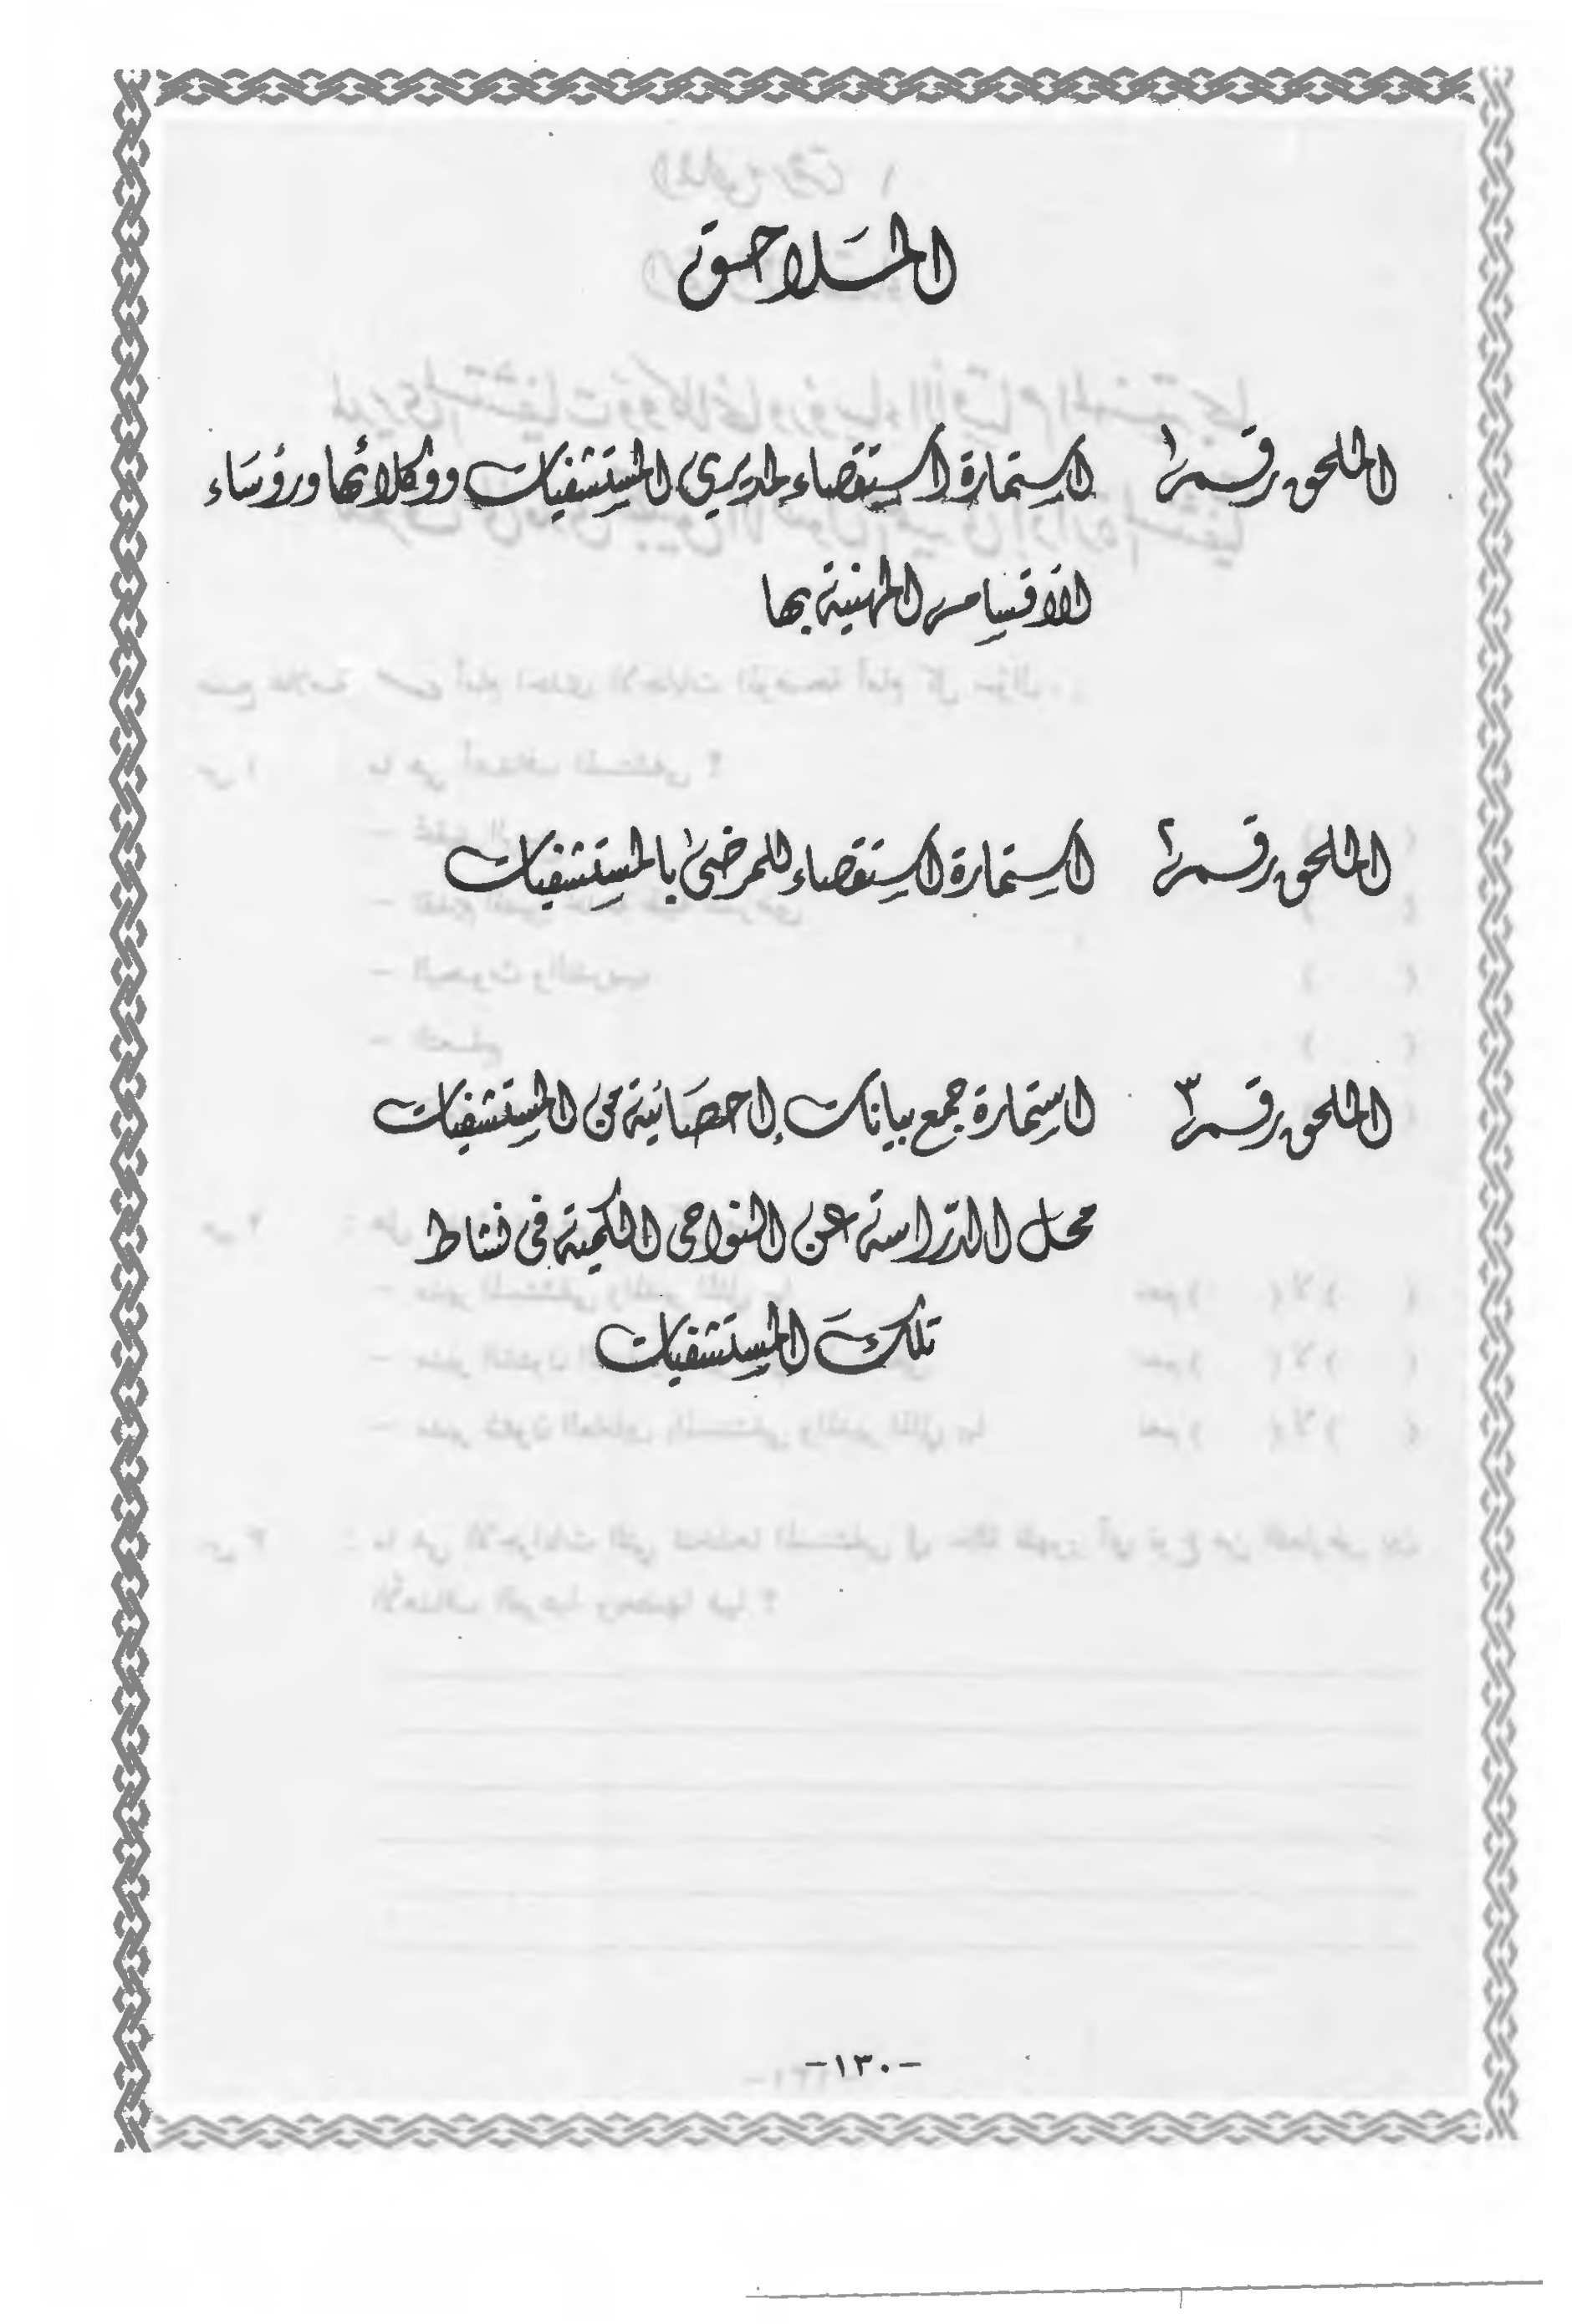 الملاحق
الملحق رقم ١ استمارة استقصاء لمديري المستشفيات ووكلائها ورؤساء
الأقسام المهنية بها
الملحق رقم ٢ استمارة استقصاء للمرضى بالمستشفيات
الملحق رقم ٣ استمارة جمع بيانات إحصائية من المستشفيات
محل الدراسة عن النواحي الكمية في نشاط
تلك المستشفيات
-١٣٠-